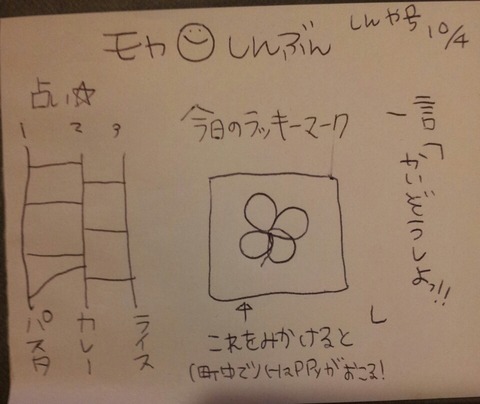 モヤ しんぶん
しんや号
10/4
占い☆
1 2 3
パスタ
カレー
ライス
今日のラッキーマーク
これをみかけると
(町中で)HaPPyがおこる!
一言「かいぞうしよっ!!」